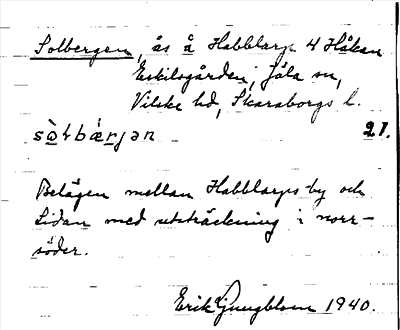 Solbergen, ås å Habblarp 4 Håkan
Eskilsgården, Jäla sn,
Vilske hd, Skaraborgs l.
sò̀ɫbæ̀rjan 21.
Belägen mellan Habblarps by och
Lidan med utsträckning i norr-
söder.
Erik Ljungblom 1940.